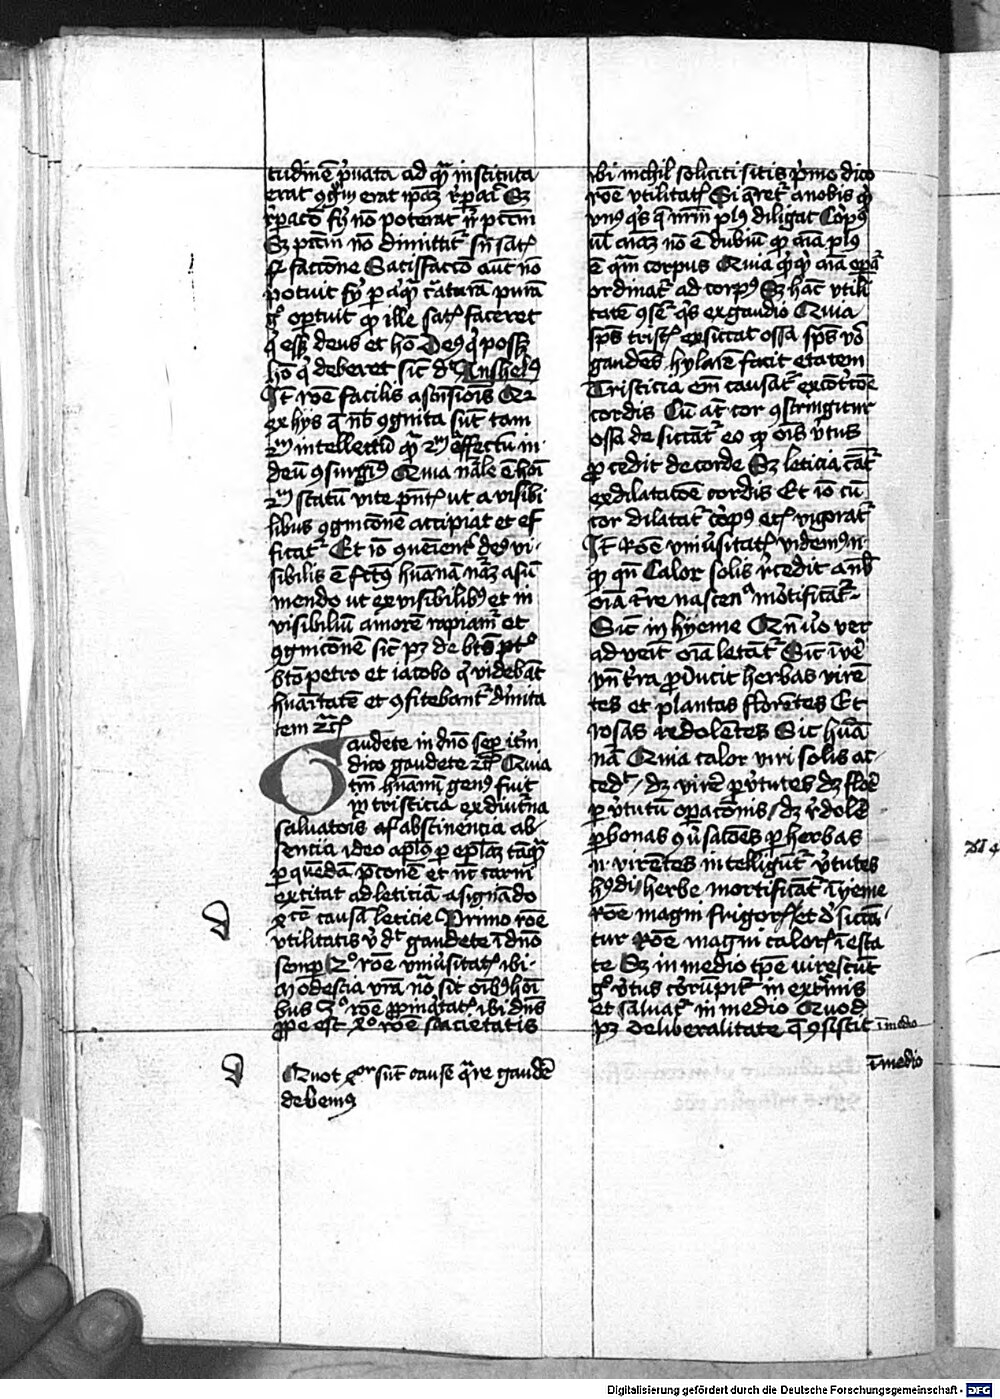 tudinē p̱uata ad q̄m instituta
erat ꝯg̱m erat ip̄az r̄p̱ai Sz
r̄p̱acō fi̱ nō poterat n̄ p̄ctm̄
Sz p̄ctm̄ nō dimittit̄ sn̄ sat
faccōne Satisfaccō aut nō
potuit fi̱ p̱ aq̄ c̄aturā purā
gͦ op̱tuit qͥ ille satꝭ faceret
qͥ ess̄ deus et hō Deꝰ qͥ poss̄
hō qͥ deberet sic̄ d̄t Anshelꝰ
It̄ rōe facilis ascn̄siois Qꝛ
ex hys q̄ nb̄ ꝯgnita sūt tam
ẜm intellectū q̄ ẜm effectū in
deū ꝯsurgimꝰ Quia nāle ē hoī
ẜm statū vite pn̄tꝭ ut a visibi
libus ꝯgnicōnē accipiat et ef
ficat̄ Et iō ꝯueient̄ deꝰ vi-
sibilis ē fctꝰ huānā nāz asū
mendo ut ex visibilibꝰ et in
visibiliū amorē rapiam̄ et
ꝯgnicōnē sic̄ pꝫ de bt̄o pt̄o
bt̄o petro et iacobo qͥ videbāt
huāitatē et ꝯfitebant̄ diuīta
tem ꝛc̄
Gaudete in dn̄o sep̱ it̄m
dico gaudete ꝛc̄ Quia
tm̄ humanū genꝰ fuit
in tristicia ex diut̄na
saluatoīs abstinencia ab-
sencia ideo ap̄lus ꝑ ep̄laz tāq̄
ꝑ quendā p̄conē et nc̄ carnī
excitat ad leticiā asignādo
causā leticie Primo rōe
vtilitatis v̱ d̄t gaudete ī dn̄o
semp̱ 2ͦ rōe vniūsitatꝭ ibi-
Modescia vr̄a nō sit oībꝰ hoī
bus 3ͦ rōe ꝓpinq̱tatꝭ ibi dn̄s
ꝓpe est 4ͦ rōe sacietatis
Quot sūt cause q̄re gaudē
debemꝰ
ibi nichil soliciti sitis p̱mo dico
rōe vtilitatꝭ Si q̱ret̄ a nobis qͥ
vnꝰqͥsq̄ nr̄m̄ plꝰ diligat corpꝰ
ul̄ aīaz nō ē dubiū qͥ aīa plꝰ
ē qm̄ corpus Quia aīa
ordinat̄ ad corpꝰ Sz hāc vtili
tatē ꝯseq̱r̄ ex gaudio Quia
sp̄s tristꝭ exsiccat ossa sp̄s v̄o
gaudēs hylarē facit etatem
Tristicia em̄ causat̄
cordis Cū aūt cor ꝯstringitur
ossa desiccāt̄ eo qͥ oīs v̱tus
ꝓcedit de corde Sz leticia cāt̄
ex dilatatōe cordis Et iō cū
cor dilatat̄ corpꝰ etꝭ vigorat̄
It̄ Rōe vniūsitatꝭ videmꝰ n̄
qͥ qn̄ Calor solis r̄cedit a nb̄
oīa t̄re nascencͣ mortificāt̄-
Sic̄ in hyeme Qn̄ v̄o ver
adveīt oīa letāt̄ Sic ī vē
t̄ra ꝓducit herbas virē
tes et plantas florentes Et
rosas redolentes Sic huā
nā Quia calor viri solis ac-
cedt̄ / dꝫ virē ꝑ v̱tutes dꝫ florē
ꝑ v̱tutū op̱acōnis / dꝫ r̄dolē
ꝑ bonas ꝯūsacōes ꝑ herbas
n̄ virentes intelligūt̄ v̱tutes
herbe mortificāt̄ ī hyeme
rōe magni frigorꝭ et desiccā-
tur Rōe magni calorꝭ ī esta
te Sz in medio tp̄e virescūt
gͦ v̱tus corrupit̄ in extremis
et saluat̄ in medio Quod
pꝫ de liberalitate q̄ ꝯsistit ī medio
ī medio
Digitalisierung gefördert durch die Deutsche Forschungsgemeinschaft - DFG